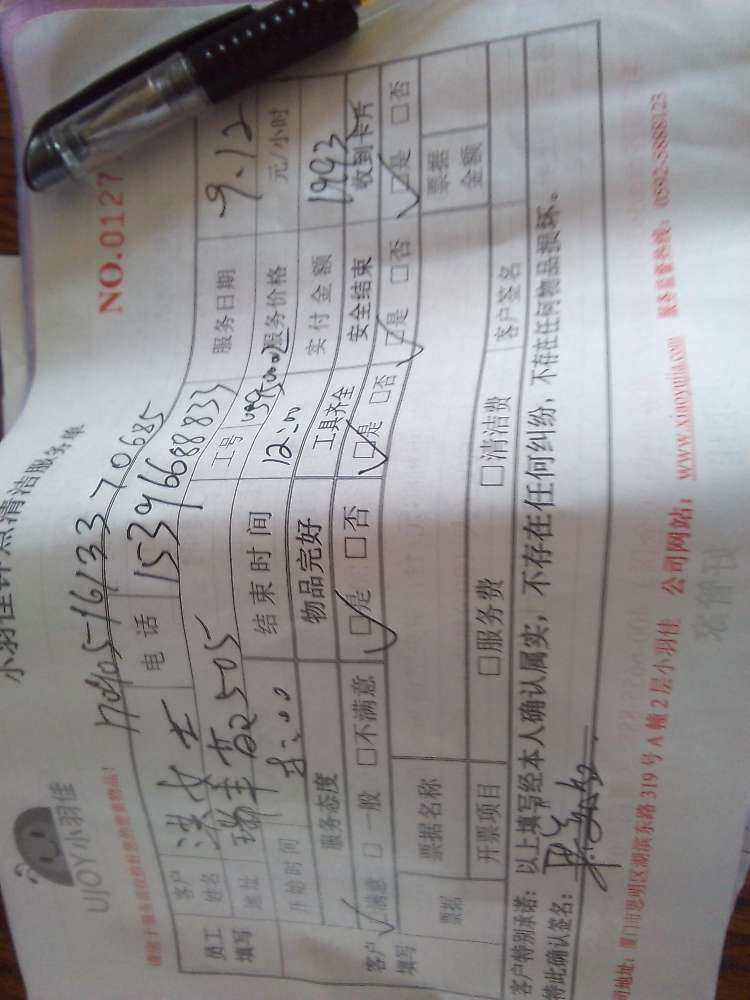 UJOY小羽佳
小羽佳钟点清洁服务单
NO.0127
170905-1613370685
员工填写
客户姓名 洪女士 电话 15396688833 服务日期 9.12
地址 瑞丰 2505 工号 服务价格 元/小时
开始时间 :00 结束时间 12:00 实付金额 1993
客户填写
服务态度 物品完好 工具齐全 安全结束 收到卡片
□满意 □一般 □不满意 □是 □否 □是 □否 □是 □否 □是 □否
票据 票据名称 票据金额
开票项目 □服务费 □清洁费 客户签名
客户特别承诺：以上填写经本人确认属实，不存在任何纠纷，不存在任何物品损坏。
特此确认签名：
地址：厦门市思明区湖滨东路319号A幢2层小羽佳 公司网站：www.xiaoyujia.com 服务监督热线：0592-5888123